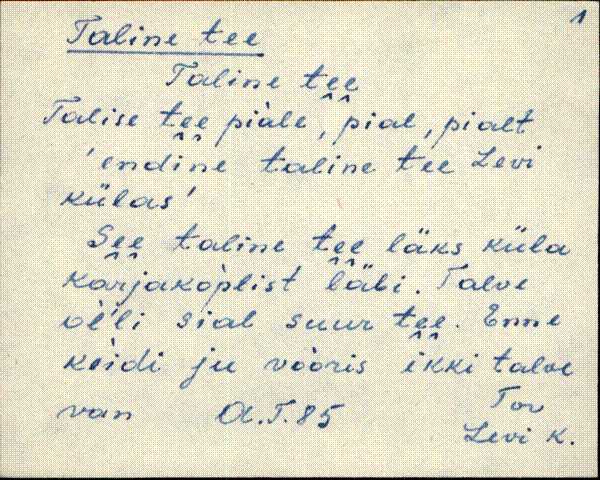 1
Taline tee
Taline tee
Talise tee piàle, pial, pialt
'endine taline tee Levi
külas'
See taline tee läks küla
karjakòplist läbi. Talve
òĺli sial suur tee. Enne
kèidi ju vòoris ikki talve
van A.T. 85 Tor
Levi k.